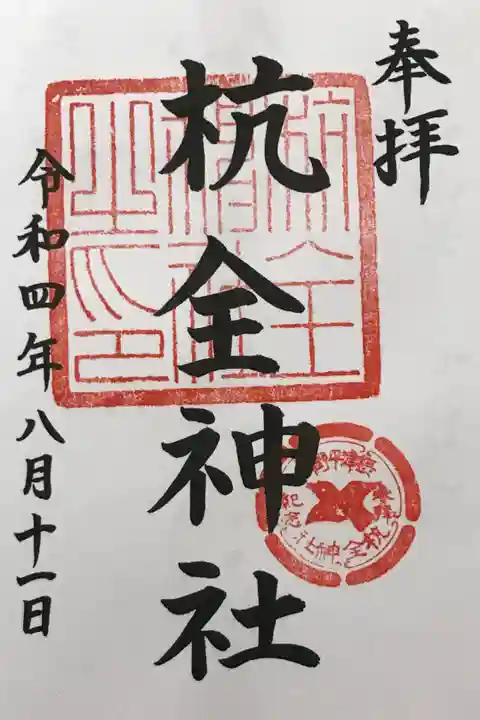 奉拝
杭全神社
令和四年八月十一日
杭全
神社
之印
参拝
紀念
杭全神社